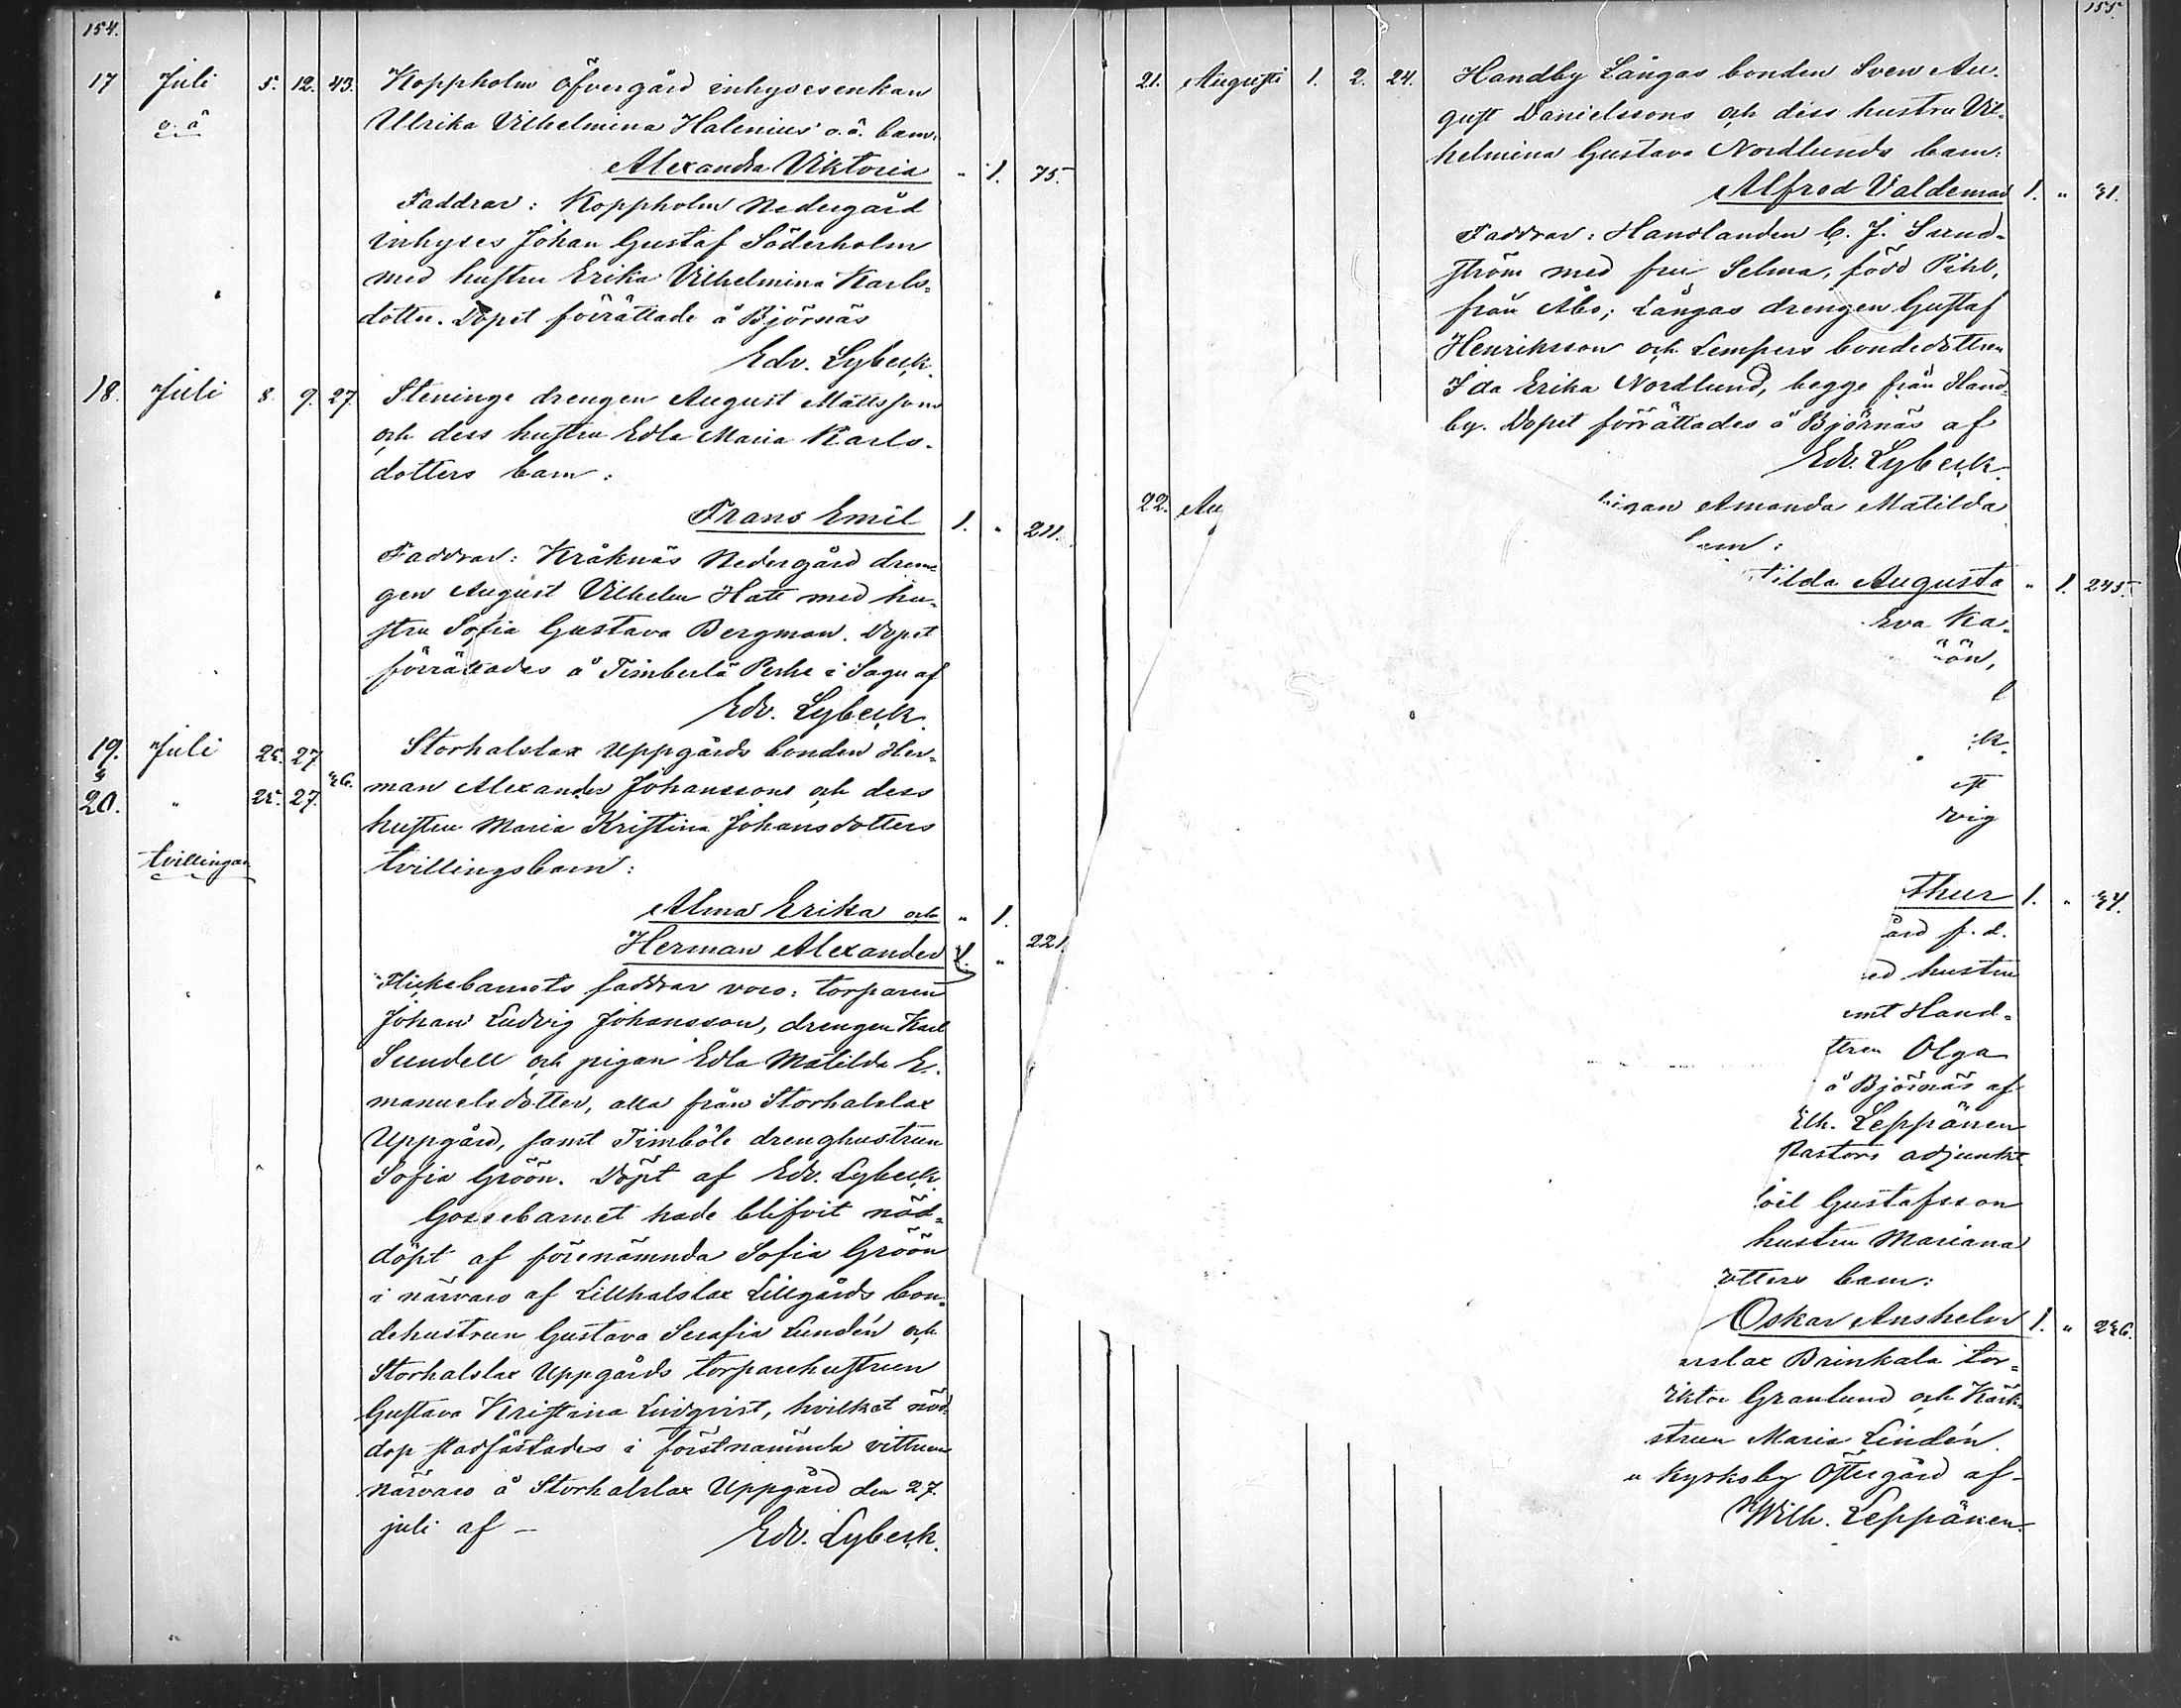 154.
17 Juli 5. 12. 43. Koppholm Öfvergård inhysesenkan
o. ä Ullrika Vilhelmina Halenius' o.ä. barn:
Alexandra Viktoria " 1. 75.
Faddrar: Koppholm Nedergård
inhyses Johan Gustaf Söderholm
med hustru Erika Vilhelmina Karls-
dotter. Dopet förrättade å Björnäs
Edv. Lybeck.
18. Juli 8. 9. 27. Steninge drengen August Mattssons
och dess hustru Edla Maria Karls-
dotters barn:
Frans Emil 1. " 211.
Faddrar: Kråknäs Nedergård dren-
gen August Vilhelm Hate med hu-
stru Sofia Gustava Bergman. Dopet
förrättades å Timberlä i Sagu af
Edv. Lybeck.
19. Juli 25. 27 Storhalslax Uppgårds bonden Her-
&
20. " 25. 27. 36. man Alexander Johanssons och dess
hustru Maria Kristina Johansdotters
tvillingar tvillingsbarn:
Alma Erika och " 1.
Herman Alexander 1. " 221.
Flickebarnets faddrar voro: torparen
Johan Ludvig Johansson, drengen Karl
Sundell och pigan Edla Matilda E-
manuelsdotter, alla från Storhalslax
Uppgård, samt Timböle drenghustrun
Sofia Gröön. Döpt af Edv. Lybeck.
Gossebarnet hade blifvit nöd-
döpt af förenämnda Sofia Gröön
i närvaro af Lillhalslax Lillgårds bon-
dehustrun Gustava Serafia Lundén och
Storhalslax Uppgårds torparehustrun
Gustava Kristina Lindqvist, hvilket nöd-
dop stadfästades i förstnämnda vittnens
närvaro å Storhalslax Uppgård den 27.
juli af — Edv. Lybeck.
155.
21. Augusti 1. 2. 24. Handby Långas bonden Sven Au-
gust Danielssons och dess hustru Vil-
helmina Gustava Nordlunds barn:
Alfred Valdemar 1. " 31.
Faddrar: Handlanden C. J. Sund-
ström med fru Selma, född Pihl,
från Åbo; Långas drengen Gustaf
Henriksson och Lempers bondedottren
Ida Erika Nordlund, begge från Hand-
by. Dopet förrättades å Björnäs af
Edv. Lybeck.
22. Au pigan Amanda Matilda
barn:
tilda Augusta " 1. 245.
Eva Ka-
öön,
l
k.
st
dvig
thur 1. " 34.
ård f.d.
ed hustru
mt Hand-
ttren Olga
å Björnäs af
Elh. Leppänen
Pastors adjunkt.
oel Gustafsson
hustru Mariana
otters barn:
Oskar Anshelm 1. " 236.
rslax Brinkala tor-
iktor Granlund och Kärk-
strun Maria Lindén.
n Kyrkoby Öftergård af —
K Wilh. Leppänen.